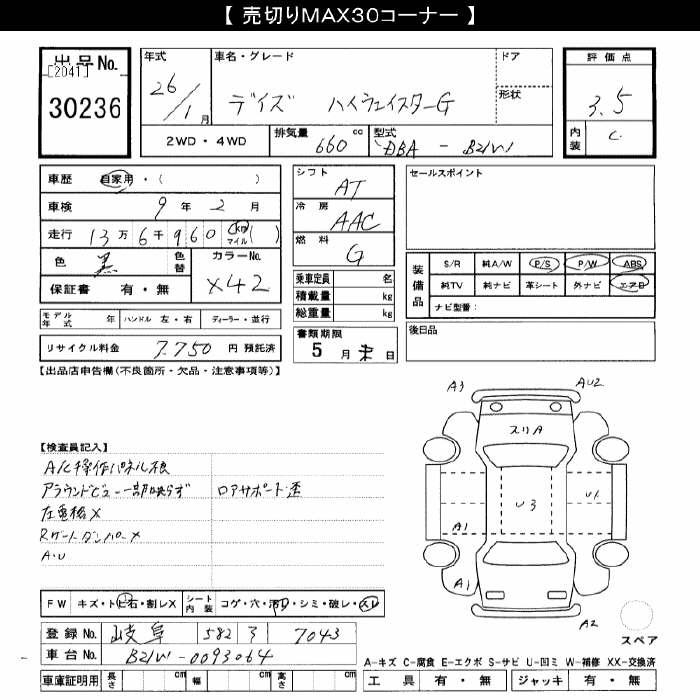 【 売切りMAX30コーナー 】
出品No. [2041] 30236
年式 26/1月
車名・グレード デイズ ハイウェイスターG
ドア
形状
評価点 3.5
内装 C
2WD・4WD 排気量 660 cc 型式 DBA - B21W
車歴 自家用・( )
車検 9年 2月
走行 13万6千960 (km マイル)
色 黒 色替 カラーNo. X42
保証書 有・無
シフト AT
冷房 AAC
燃料 G
乗車定員 名
積載量 kg
総重量 kg
セールスポイント
装備品 S/R 純A/W P/S P/W ABS
純TV 純ナビ 革シート 外ナビ エアB
ナビ型番:
モデル年式 年 ハンドル 左・右 ディーラー・並行
リサイクル料金 7.750 円 預託済
書類期限 5月末日
後日品
【出品店申告欄(不良箇所・欠品・注意事項等)】
A3 AU2
スリA
【検査員記入】
A/C操作パネル
アラウンドビュー一部映らず ロアサポート歪
U3 U1
A1
Rゲートダンパー×
A・U
A1
FW キズ・トビ石・割レX シート内装 コゲ・穴・汚レ・シミ・破レ・スレ
A2
登録No. 岐阜 582 ヲ 7043
スペア
車台No. B21W-0093064
A-キズ C-腐食 E-エクボ S-サビ U-凹ミ W-補修 XX-交換済
車庫証明用 長さ cm 幅 cm 高さ cm
工具 有・無 ジャッキ 有・無